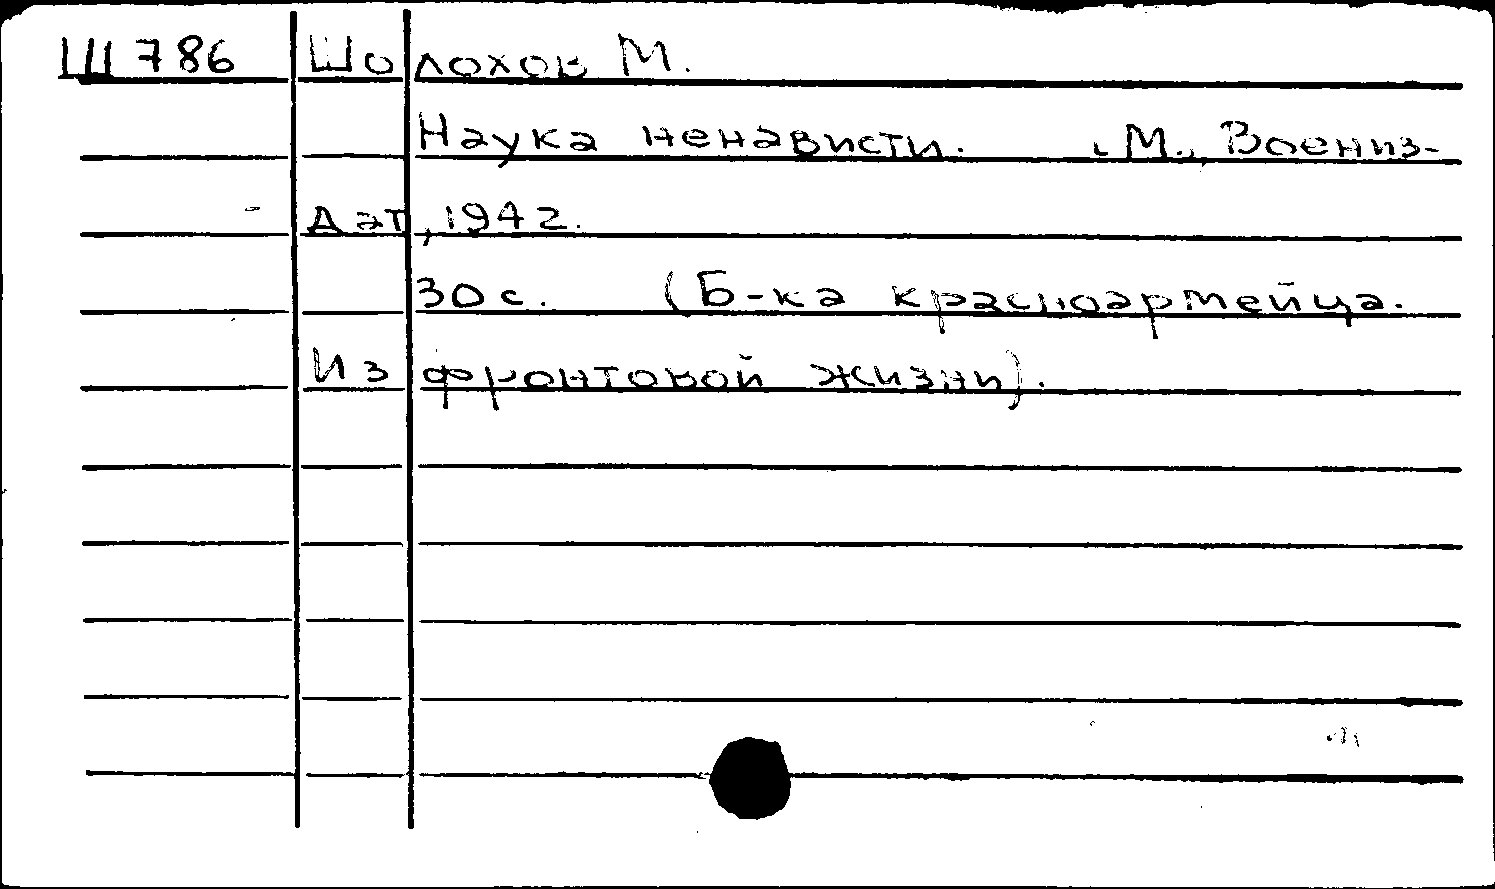 Ш786 Шолохов М.
Наука ненависти. М., Воениз-
дат, 1942.
30 с. (Б-ка красноармейца.
Из фронтовой жизни).